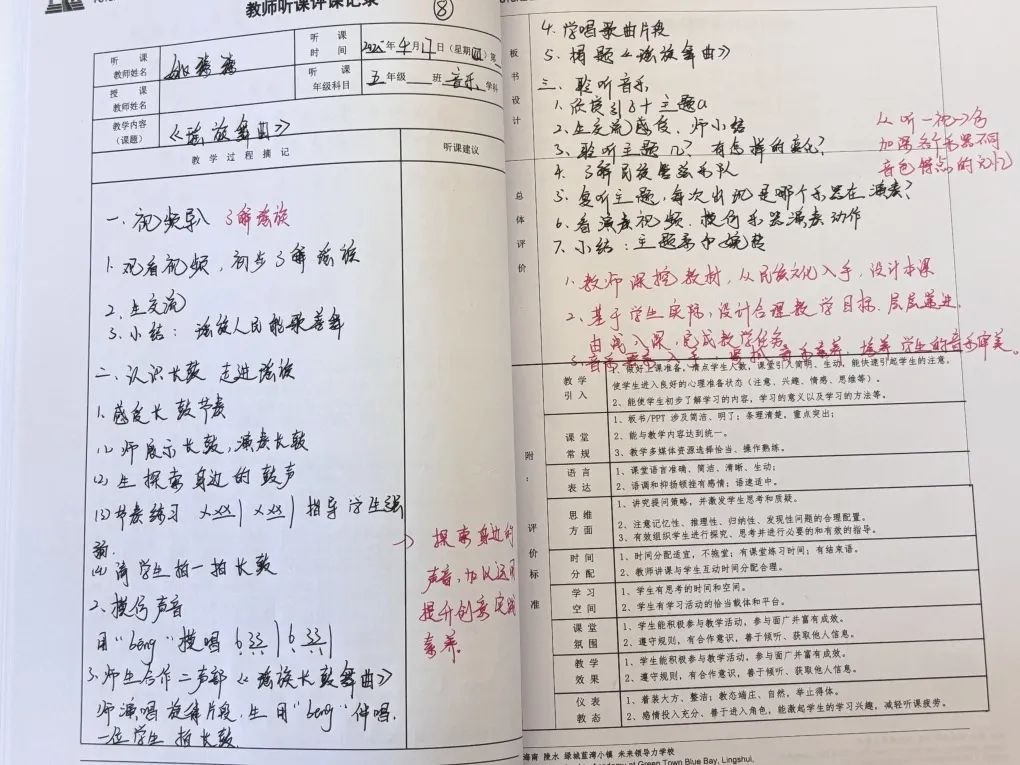 教师听课评课记录
⑧
听课教师姓名
听课时间 2025年4月17日（星期四）第
授课教师姓名
听课年级科目 五年级 班 音乐 学科
教学内容（课题） 《瑶族舞曲》
教学过程摘记
听课建议
一、视频导入 了解瑶族
1. 观看视频，初步了解瑶族
2. 生交流
3. 小结：瑶族人民能歌善舞
二、认识长鼓 走进瑶族
1. 感受长鼓节奏
(1) 师展示长鼓，演奏长鼓
(2) 生探索身边的鼓声
(3) 节奏练习 X XX | X XX | 指导学生强
弱.
(4) 请学生拍一拍长鼓
2、模仿声音
用"beng"模唱
3. 师生合作二声部《瑶族长鼓舞曲》
师演唱旋律片段，生用"beng"伴唱，
一位学生拍长鼓.
→ 探索身边的
声音，加以运用
提升创意实践
素养。
板书设计
4. 学唱歌曲片段
5. 揭题《瑶族舞曲》
三、聆听音乐
1. 欣赏引子+主题a
2. 生交流感受、师小结
3、聆听主题几？有怎样的变化？
4. 了解民族管弦乐队
5. 复听主题，每次出现是哪个乐器在演奏？
6. 看演奏视频，模仿乐器演奏动作
7. 小结：主题柔中婉转
从听→视→名
加深各个乐器不同
音色特点的记忆
总体评价
1. 教师深挖教材，从民族文化入手，设计本课
2. 基于学生实际，设计合理教学目标，层层递进，
由浅入深，完成教学任务
3. 音乐要素入手，紧扣音乐素养，培养学生的音乐审美。
附：评价标准
教学引入
1、做好上课准备，清点学生人数，课堂引入简明、生动，能快速引起学生的注意，
使学生进入良好的心理准备状态（注意、兴趣、情感、思维等）。
2、能使学生初步了解学习的内容，学习的意义以及学习的方法等。
课堂常规
1、板书/PPT 涉及简洁、明了；条理清楚，重点突出；
2、能与教学内容达到统一。
3、教学多媒体资源选择恰当、操作熟练。
语言表达
1、课堂语言准确、简洁、清晰、生动；
2、语调和抑扬顿挫有感情；语速适中。
思维方面
1、讲究提问策略，并激发学生思考和质疑。
2、注意记忆性、推理性、归纳性、发现性问题的合理配置。
3、有效组织学生进行探究、思考并进行必要的和有效的指导。
时间分配
1、时间分配适宜，不拖堂；有课堂练习时间；有结束语。
2、教师讲课与学生互动时间分配合理。
学习空间
1、学生有思考的时间和空间。
2、学生有学习活动的恰当载体和平台。
课堂氛围
1、学生能积极参与教学活动，参与面广并富有成效。
2、遵守规则，有合作意识，善于倾听、获取他人信息。
教学效果
1、学生能积极参与教学活动，参与面广并富有成效。
2、遵守规则，有合作意识，善于倾听、获取他人信息。
仪表教态
1、着装大方、整洁；教态端庄、自然，举止得体。
2、感情投入充分、善于进入角色，能激起学生的学习兴趣，减轻听课疲劳。
海南 陵水 绿城蓝湾小镇 未来领导力学校
Academy at Green Town Blue Bay, Lingshui,